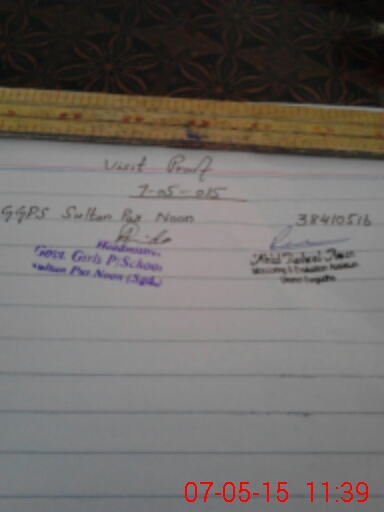 Visit Proof
7-05-015
GGPS Sultan Pur Noon
38410516
Headmistress
Govt. Girls P/School
Sultan Pur Noon (Sgd)
Abid Rasheed
Monitoring & Evaluation Assistant
07-05-15 11:39